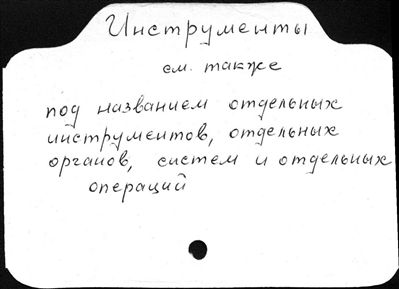 Инструменты
см. также
под названием отдельных
инструментов, отдельных
органов, систем и отдельных
операций